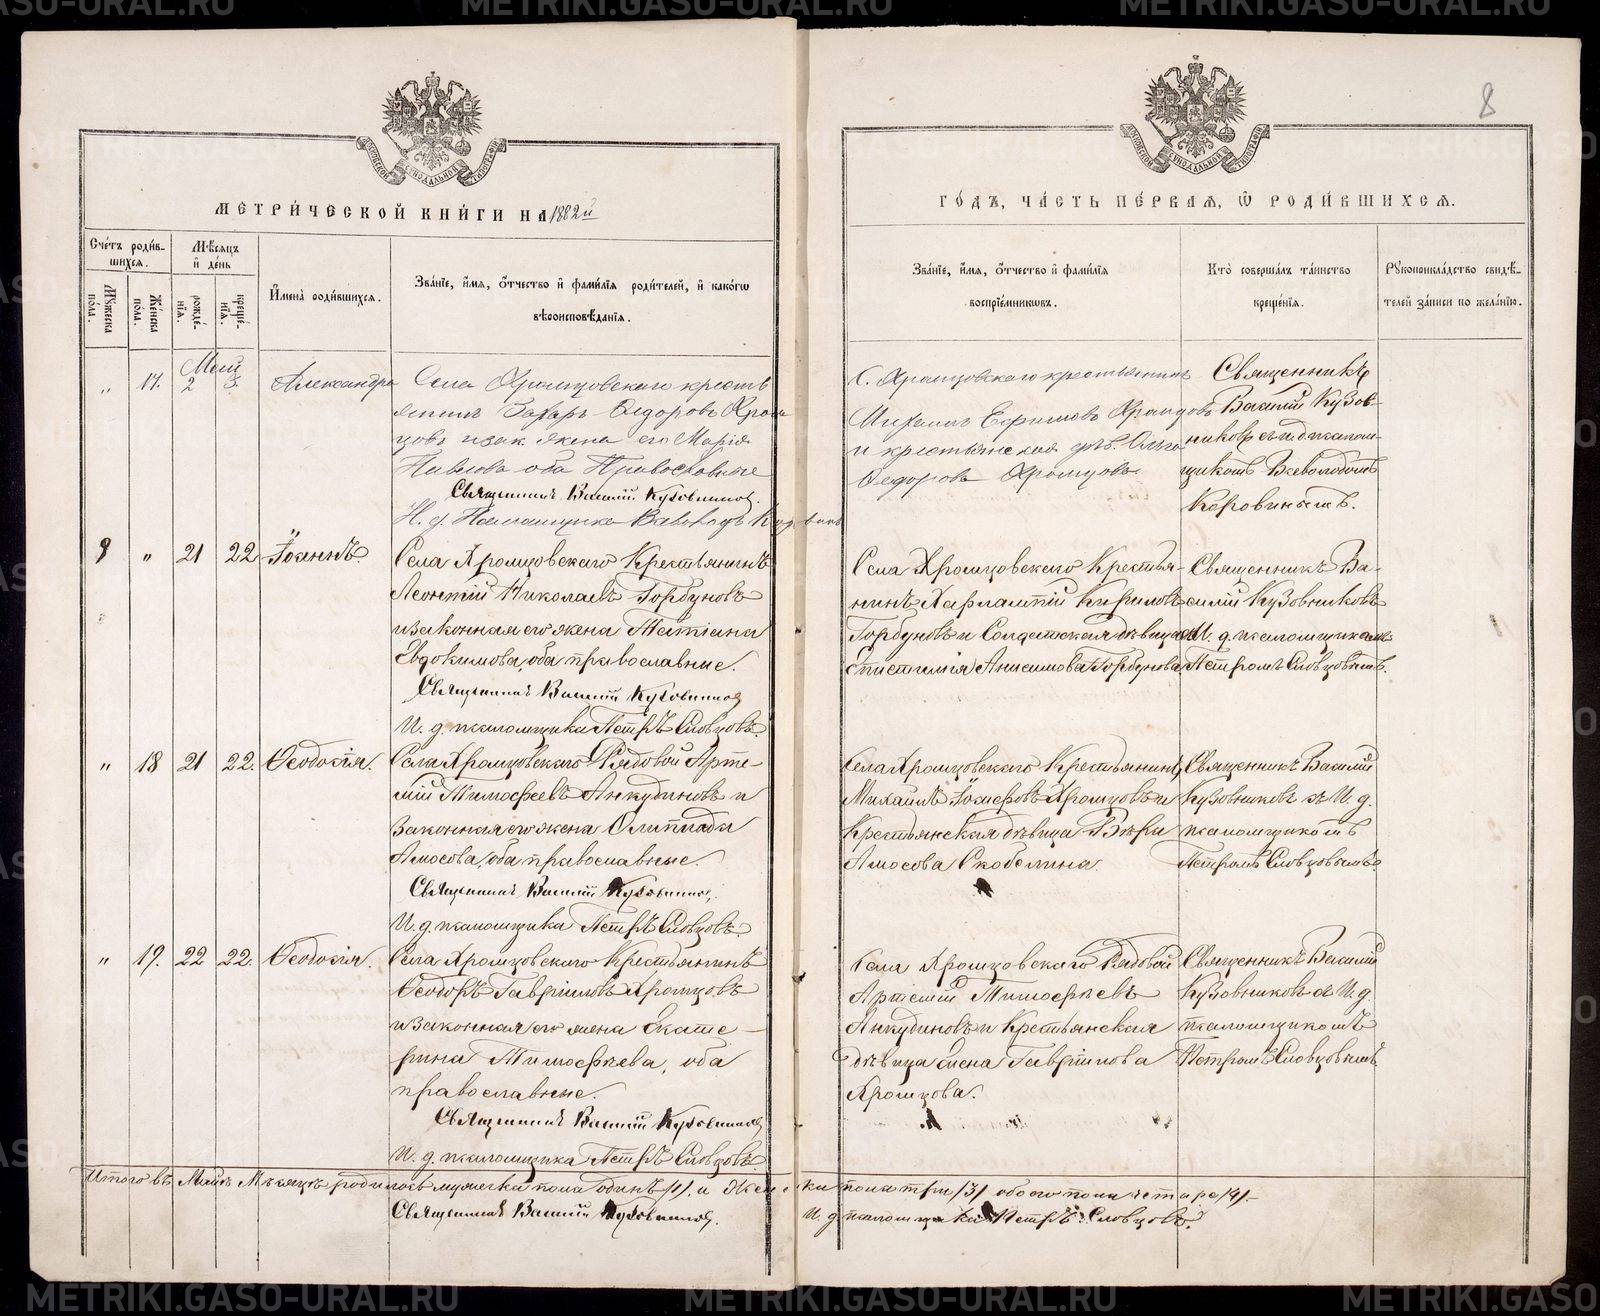 METRIKI.GASO-URAL.RU
8
МЕТРИ́ЧЕСКОЙ КНИ́ГИ НА 1882й
ГО́ДЪ, ЧА́СТЬ ПЕ́РВАЯ, Ѿ РОДИ́ВШИХСЯ.
Сче́тъ роди́в-
шихся.
Мꙋ́жеска пола.
Же́нска пола.
Мѣ́сяцъ
и́ де́нь
рожде́-
нїя.
креще́-
нїя.
И́мена̀ роди́вшихся.
Зва́нїе, и́мя, о́тчество и́ фами́лїя роди́телей, и́ како́гѡ
вѣроисповѣ́данїя.
Зва́нїе, и́мя, о́тчество и́ фами́лїя
воспрїе́мникѡвъ.
Кто̀ соверша́лъ та́инство
креще́нїя.
Рꙋкоприкла́дство свидѣ́-
телей за́писи по жела́нїю.
Май
„ 17. 2 3. Александра
Села Хромцовскаго кресть
янинъ Захаръ Ѳедоровъ Хром
цовъ и зак. жена его Марія
Павлова оба Православные
Священникъ Василій Кузовниковъ.
С. Хромцовскаго крестьянинъ
Михаилъ Ефимовъ Хромцовъ
и крестьянская дѣв. Ольга
Ѳедорова Хромцова
Священникъ
Василій Кузов-
никовъ съ и. д. псалом-
щикомъ Всеволодомъ
Коровинымъ.
9 „ 21 22 Іоаннъ.
Села Хромцовскаго Крестьянинъ
Леонтій Николаевъ Горбуновъ
и законная его жена Татіана
Евдокимова, оба православные.
Священникъ Василій Кузовниковъ
И. д. псаломщика Петръ Словцовъ.
Села Хромцовскаго Крестья-
нинъ Харлампій Кириловъ
Горбуновъ и Солдатская дѣвица
Епистимія Анисимова Горбунова.
Священникъ Ва-
силій Кузовниковъ
съ И. д. псаломщикомъ
Петромъ Словцовымъ.
„ 18 21 22. Ѳеодосія.
Села Хромцовскаго Рядовой Арте-
мій Тимофеевъ Анкудиновъ и
законная его жена Олимпіада
Амосова, оба православные.
Священникъ Василій Кузовниковъ.
И. д. псаломщика Петръ Словцовъ.
Села Хромцовскаго Крестьянинъ
Михаилъ Іосифовъ Хромцовъ и
Крестьянская дѣвица Вѣра
Амосова Скобелина.
Священникъ Василій
Кузовниковъ съ И. д.
псаломщикомъ
Петромъ Словцовымъ.
„ 19. 22 22. Ѳеодосія.
Села Хромцовскаго Крестьянинъ
Ѳеодоръ Гавріиловъ Хромцовъ
и законная его жена Екате-
рина Тимофѣева, оба
православные.
Священникъ Василій Кузовниковъ
И. д. псаломщика Петръ Словцовъ.
Села Хромцовскаго Рядовой
Артемій Тимофѣевъ
Анкудиновъ и Крестьянская
дѣвица Елена Гавріилова
Хромцова.
Священникъ Василій
Кузовниковъ съ И. д.
псаломщикомъ
Петромъ Словцовымъ.
Итого въ Маѣ Мѣсяцѣ родилось мужеска пола одинъ /1/, и женска пола три /3/ обоего пола четыре /4/.
Священникъ Василій Кузовниковъ.
И. д. псаломщика Петръ Словцовъ.